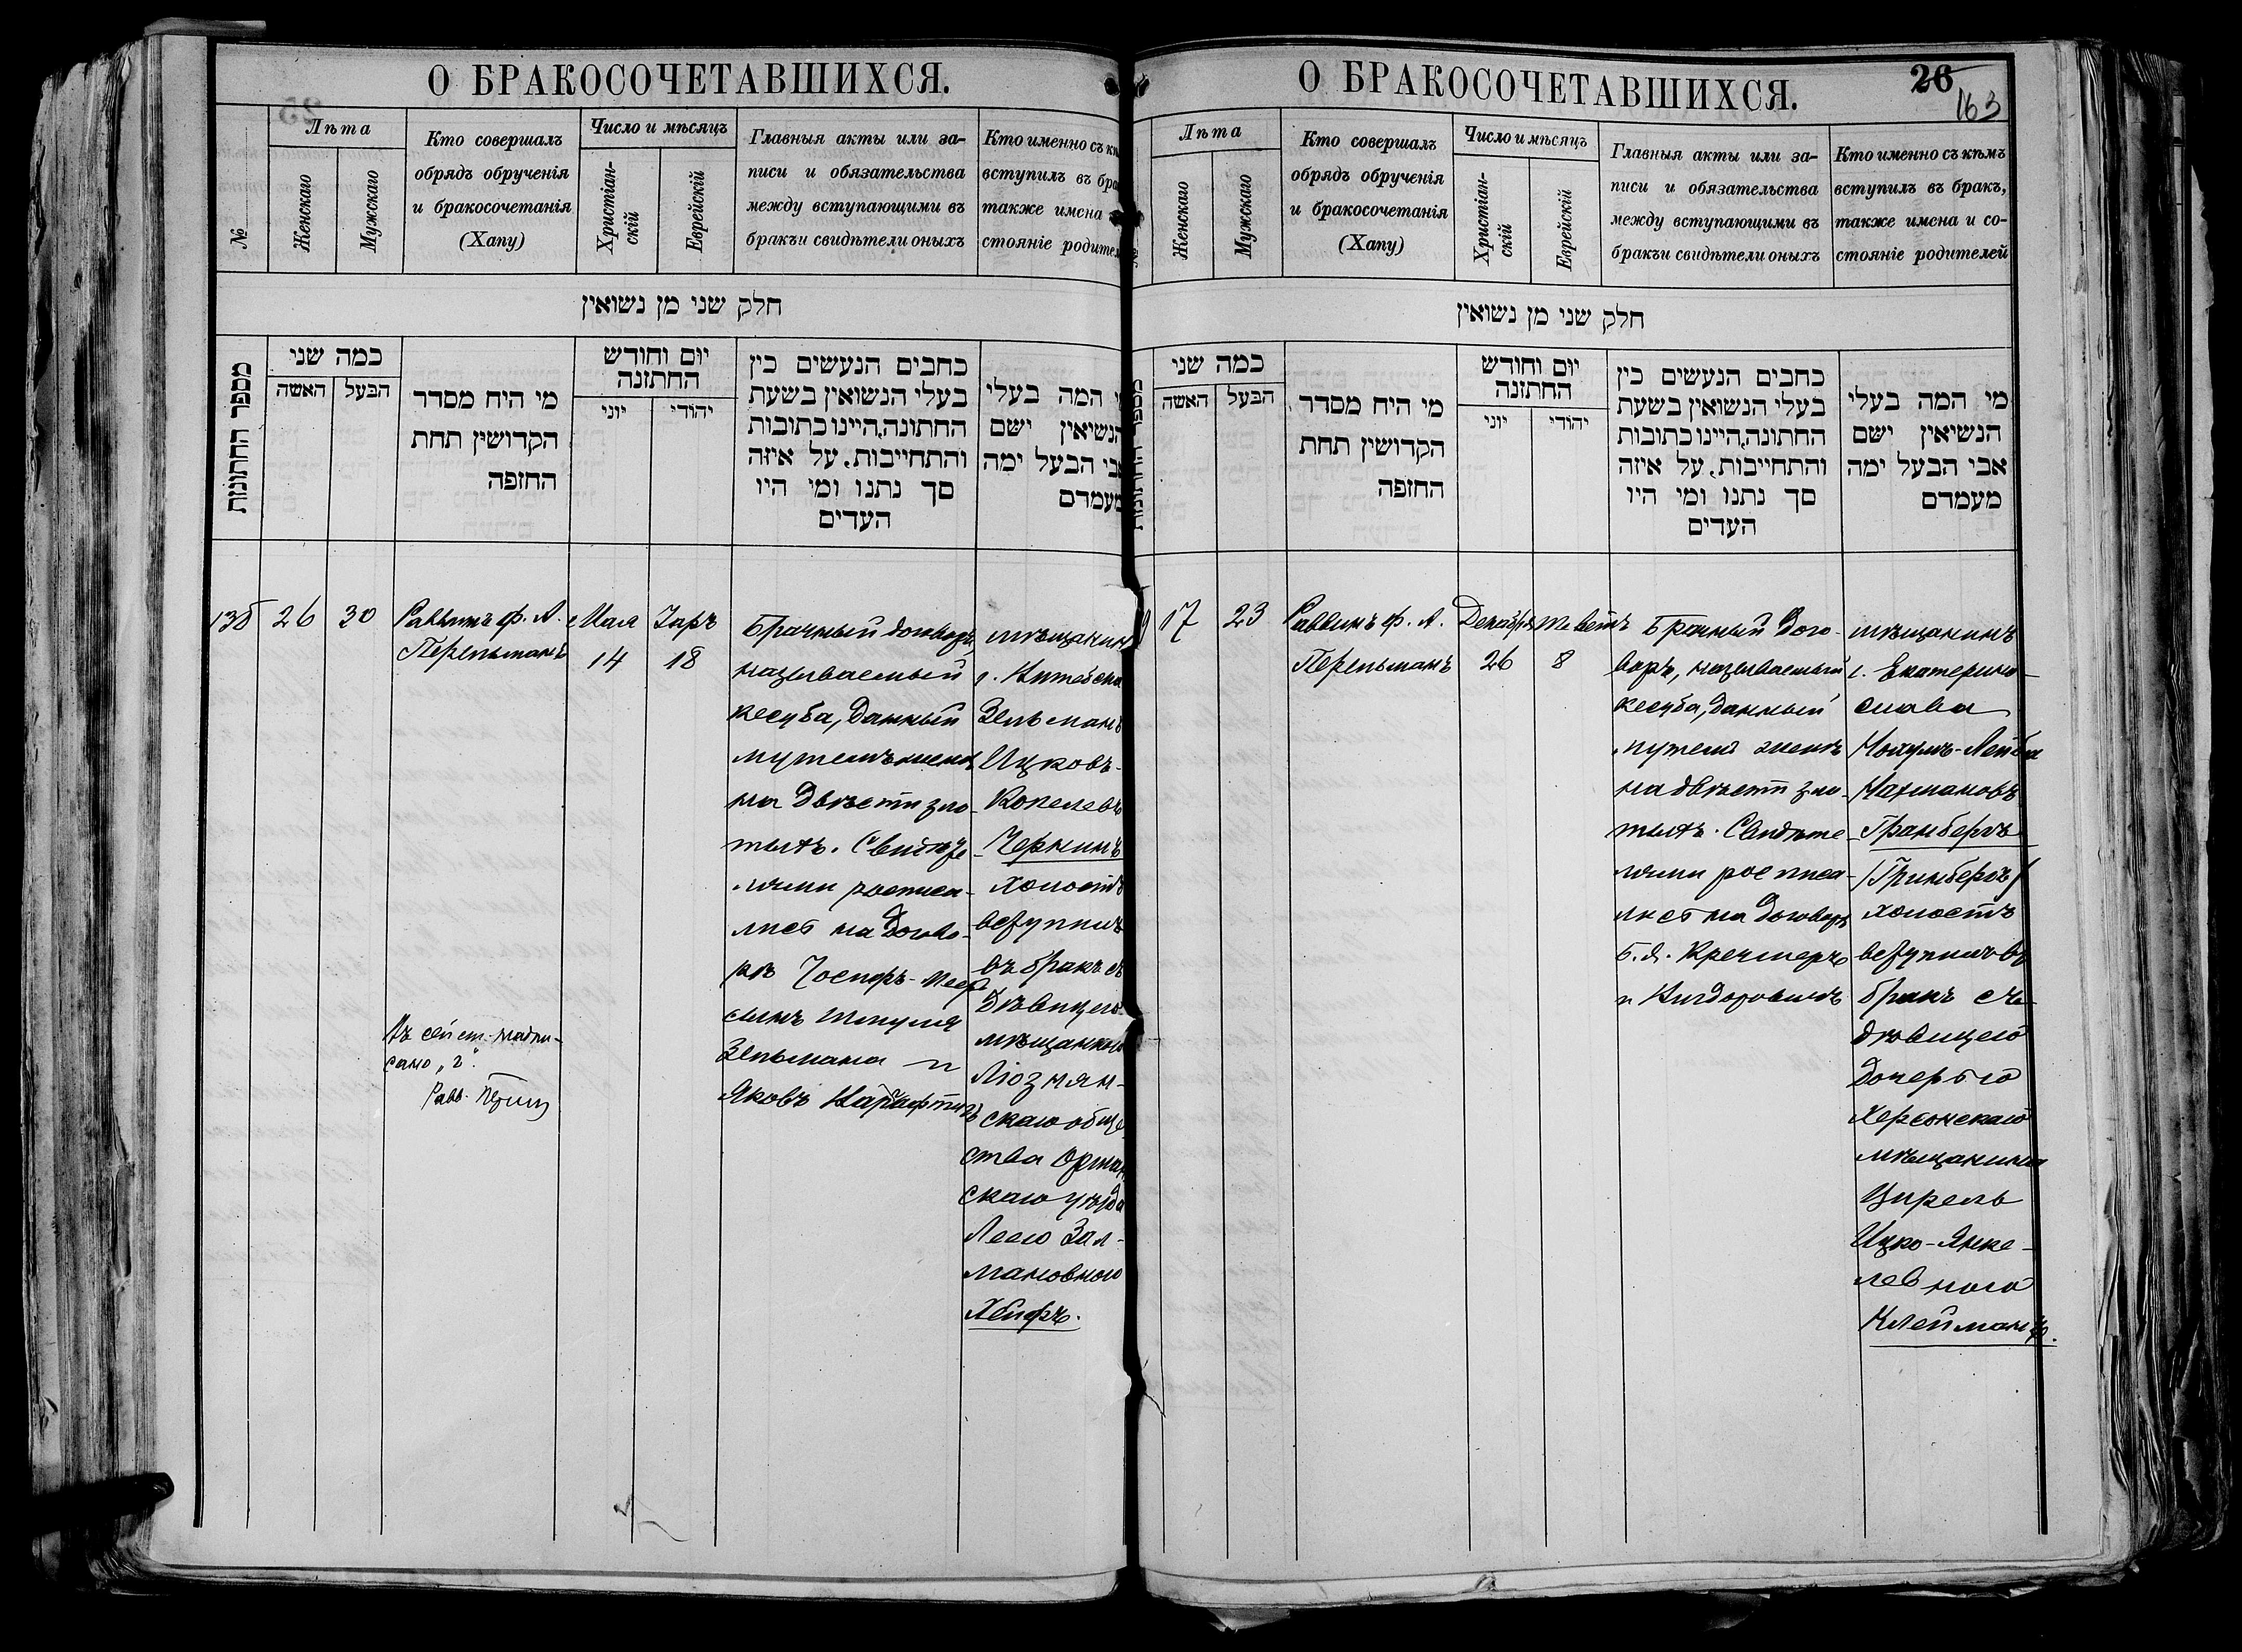 О БРАКОСОЧЕТАВШИХСЯ.
№
Лѣта
Женскаго
Мужскаго
Кто совершалъ
обрядъ обрученія
и бракосочетанія
(Хапу)
Число и мѣсяцъ
Христіан-
скій
Еврейскій
Главныя акты или за-
писи и обязательства
между вступающими въ
бракъи свидѣтели оныхъ
Кто именно съ
вступилъ въ
также имена
стояніе
חלק שני מן נשואין
מספר החתונות
כמה שני
האשה
הבעל
מי היח מסדר
הקדושין תחת
החופה
יום וחודש
החתונה
יוני
יהודי
כחבים הנעשים כין
בעלי הנשואין בשעת
החתונה, היינו כתובות
והתחייבות, על איזה
סך נתנו ומי היו
העדים
המה בעלי
הנשיאין ישם
אבי הבעל ימה
מעמדם
26
30
Раввинъ ф. А.
Перельманъ
Мая
14
Іаръ
18
Брачный договоръ,
называемый
кесуба, данный
мужемъ женѣ
на двѣсти зло-
тыхъ. Свидѣте-
лями росписа-
лись на догово-
рѣ Іосифъ-Меер
сынъ Шмуля
Зельмана и
Яковъ
мѣщанинъ
г. Витебска
Зельманъ
Ицковъ-
Копелевъ
Чернинъ
холостъ
вступилъ
въ бракъ съ
дѣвицею
мѣщанкою
Люзнян-
скаго обще-
ства Оршан-
скаго уѣзда
Леею Зал-
мановною
Хейфъ.
Въ сей ст. надпи-
сано „г“.
Равв.
О БРАКОСОЧЕТАВШИХСЯ.
26
163
Лѣта
Женскаго
Мужскаго
Кто совершалъ
обрядъ обрученія
и бракосочетанія
(Хапу)
Число и мѣсяцъ
Христіан-
скій
Еврейскій
Главныя акты или за-
писи и обязательства
между вступающими въ
бракъи свидѣтели оныхъ
Кто именно съ кѣмъ
вступилъ въ бракъ,
также имена и со-
стояніе родителей
חלק שני מן נשואין
כמה שני
האשה
הבעל
מי היח מסדר
הקדושין תחת
החופה
יום וחודש
החתונה
יוני
יהודי
כחבים הנעשים כין
בעלי הנשואין בשעת
החתונה, היינו כתובות
והתחייבות, על איזה
סך נתנו ומי היו
העדים
מי המה בעלי
הנשיאין ישם
אבי הבעל ימה
מעמדם
17
23
Раввинъ ф. А.
Перельманъ
Декабрь
26
Теветъ
8
Брачный дого-
воръ, называемый
кесуба, данный
мужемъ женѣ
на двѣсти зло-
тыхъ. Свидѣте-
лями росписа-
лись на договорѣ
Б. Я. Кречмеръ
и Вигдоровичъ
мѣщанинъ
г. Екатерино-
слава
Нохумъ-Лейба
Нахмановъ
Гранбергъ
/Гринбергъ/
холостъ
вступилъ въ
бракъ съ
дѣвицею
дочерью
Херсонскаго
мѣщанина
Цирель
Ицко-Янке-
левною
Клейманъ.